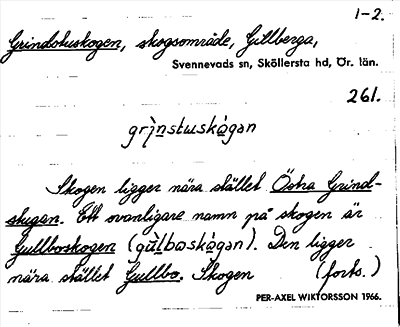 1-2.
Grindstuskogen, skogsområde, Gillberga,
Svennevads sn, Sköllersta hd, Ör. län.
261.
grìnstuskògan
Skogen ligger nära stället Östra Grind-
stugan. Ett ovanligare namn på skogen är
Gullboskogen (gùlboskògan). Den ligger
nära stället Gullbo. Skogen (forts.)
PER-AXEL WIKTORSSON 1966.